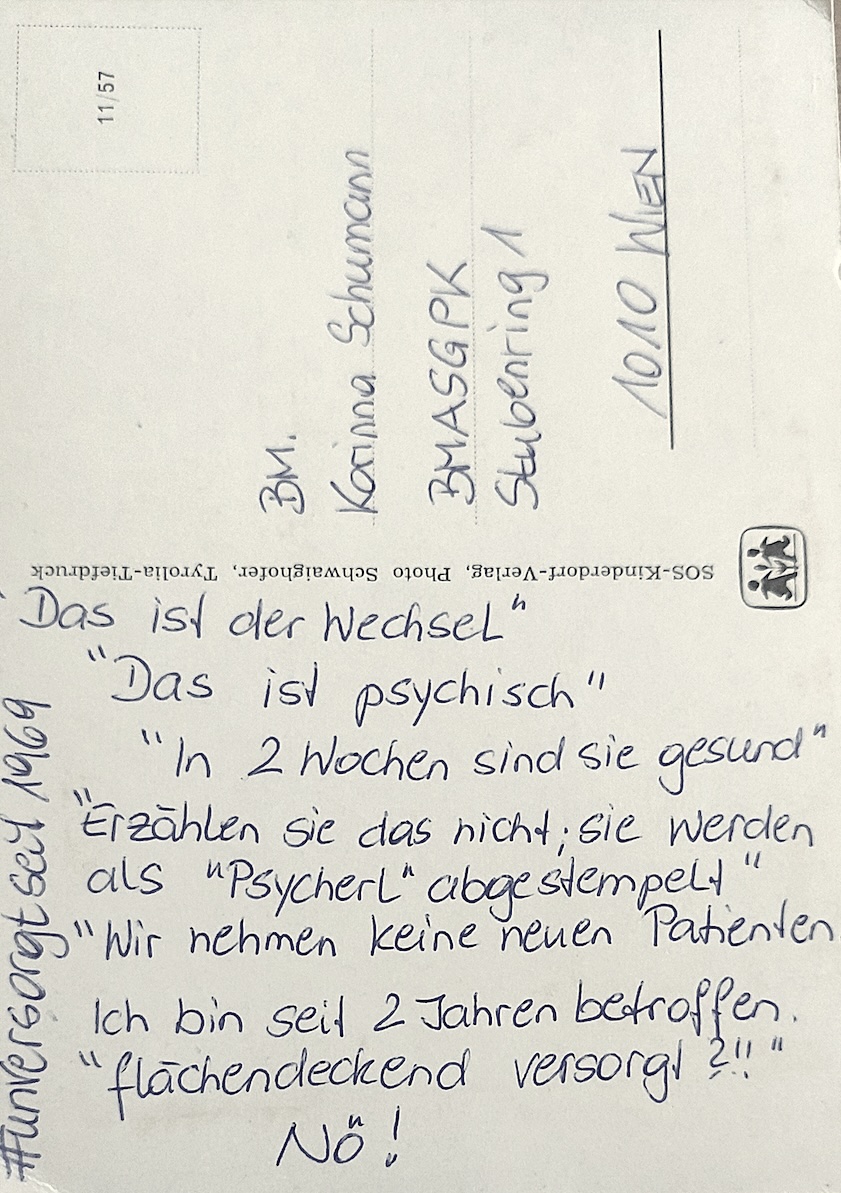 11/57
BM.
Korinna Schumann
BMASGPK
Stubenring 1
1010 WIEN
SOS-Kinderdorf-Verlag, Photo Schwaighofer, Tyrolia-Tiefdruck
Das ist der Wechsel"
"Das ist psychisch"
"In 2 Wochen sind sie gesund"
"Erzählen sie das nicht; sie werden
als "Psycherl" abgestempelt"
"Wir nehmen keine neuen Patienten
Ich bin seit 2 Jahren betroffen.
"flächendeckend versorgt ?!!"
Nö!
#unversorgt seit 1969